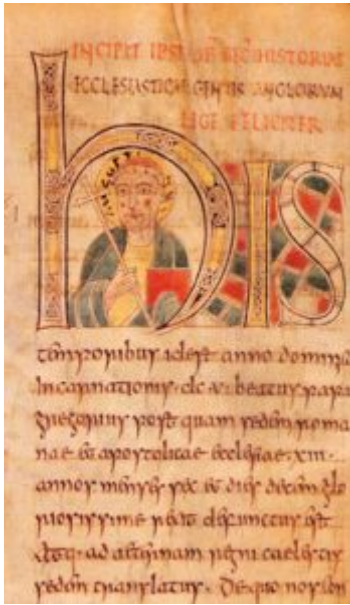 INCIPIT IPSI HISTORIAE
ECCLESIASTICAE GENTIS ANGLORUM
FELICITER
hIS
temporibus id est anno dominicae
Incarnationis. dc v. beatus papa
gregorius post quam sedem roma
nae et apostolicae ecclesiae. xiii.
annos menses sex et dies decem glo
riosissime rexit defunctus est
atque. ad aeternam regni caelestis
sedem translatus. De quo nos